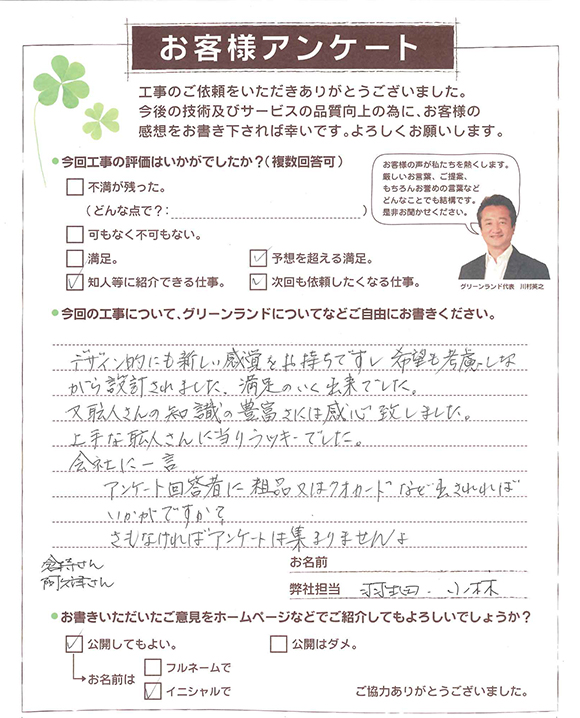 お客様アンケート
工事のご依頼をいただきありがとうございました。
今後の技術及びサービスの品質向上の為に、お客様の
感想をお書き下されば幸いです。よろしくお願いします。
今回工事の評価はいかがでしたか?(複数回答可)
不満が残った。
(どんな点で?: )
可もなく不可もない。
満足。
予想を超える満足。
知人等に紹介できる仕事。
次回も依頼したくなる仕事。
お客様の声が私たちを熱くします。
厳しいお言葉、ご提案、
もちろんお誉めの言葉など
どんなことでも結構です。
是非お聞かせください。
グリーンランド代表 川村英之
今回の工事について、グリーンランドについてなどご自由にお書きください。
デザイン的にも新しい感覚をお持ちですし 希望も考慮しな
がら設計されました、満足のいく出来でした。
又職人さんの知識の豊富さには感心致しました。
上手な職人さんに当りラッキーでした。
会社に一言
アンケート回答者に粗品又はクオカードなど出されれば
いかがですか?
さもなければアンケートは集まりませんよ
さん
阿久津さん
お名前
弊社担当 羽田・小林
お書きいただいたご意見をホームページなどでご紹介してもよろしいでしょうか?
公開してもよい。
公開はダメ。
お名前は
フルネームで
イニシャルで
ご協力ありがとうございました。